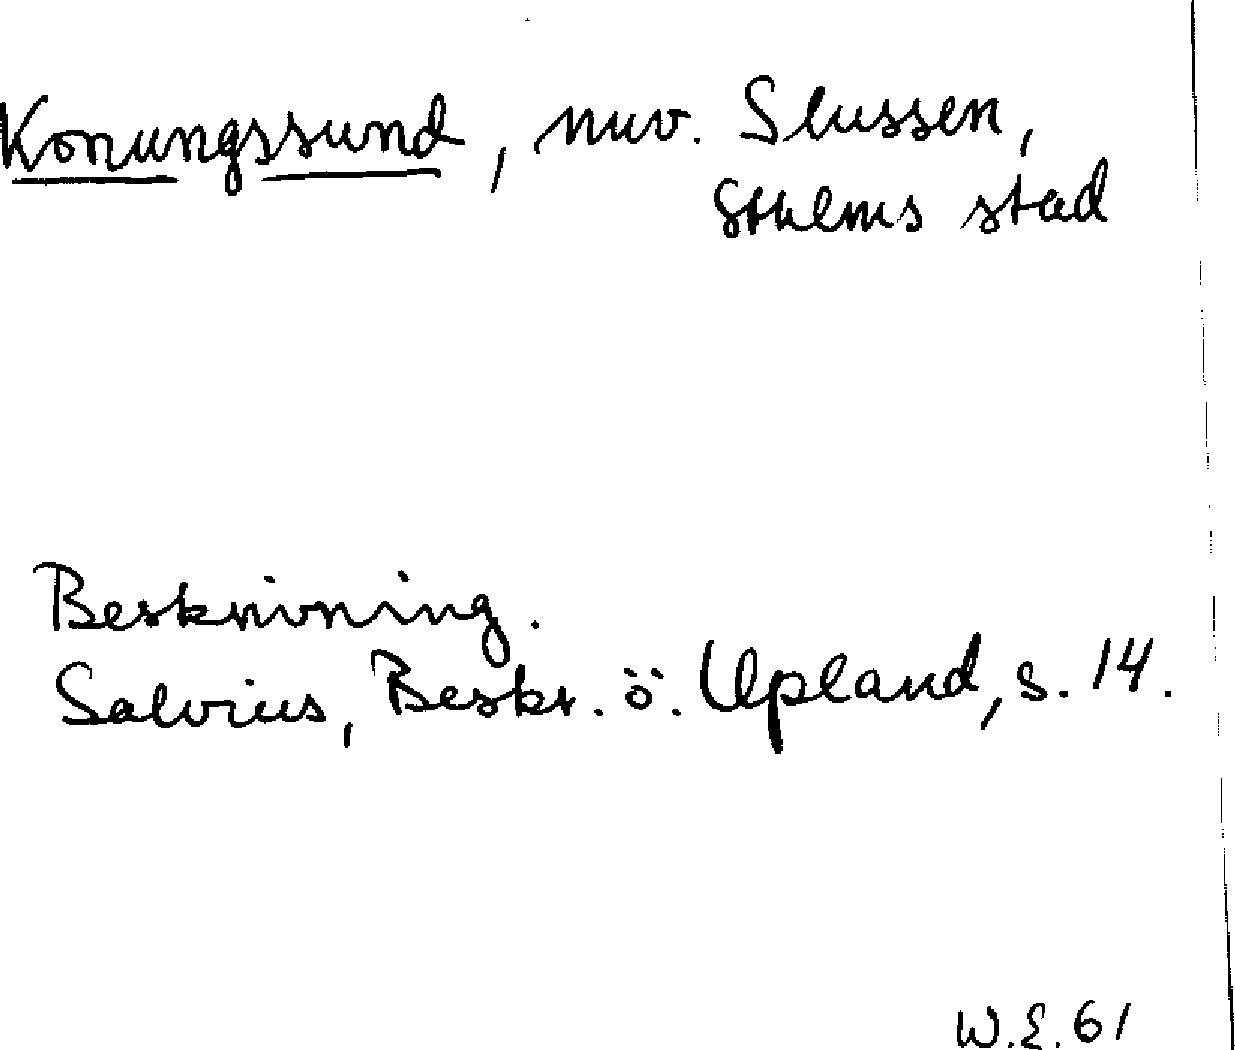 Konungssund, nuv. Slussen,
Sthlms stad
Beskrivning.
Salvius, Beskr. ö. Upland, s. 14.
W.E. 61